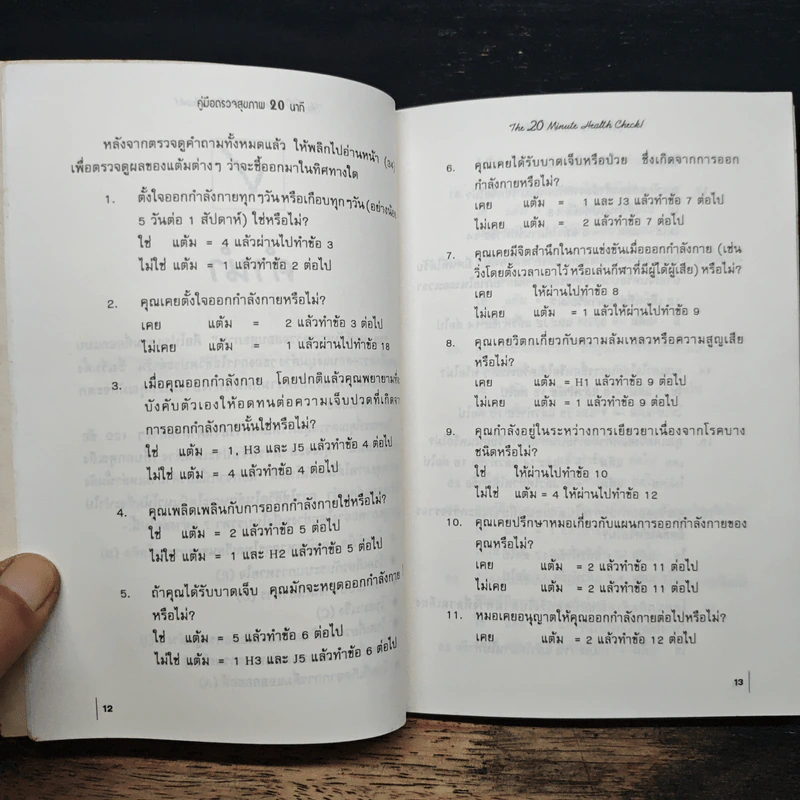 คู่มือตรวจสุขภาพ 20 นาที
หลังจากตรวจดูคำถามทั้งหมดแล้ว ให้พลิกไปอ่านหน้า (34)
เพื่อตรวจดูผลของแต้มต่างๆ ว่าจะชี้ออกมาในทิศทางใด
1. ตั้งใจออกกำลังกายทุกๆวัน หรือเกือบทุกๆวัน (อย่างน้อย
5 วันต่อ 1 สัปดาห์) ใช่หรือไม่?
ใช่ แต้ม = 4 แล้วผ่านไปทำข้อ 3
ไม่ใช่ แต้ม = 1 แล้วทำข้อ 2 ต่อไป
2. คุณเคยตั้งใจออกกำลังกายหรือไม่?
เคย แต้ม = 2 แล้วทำข้อ 3 ต่อไป
ไม่เคย แต้ม = 1 แล้วผ่านไปทำข้อ 18
3. เมื่อคุณออกกำลังกาย โดยปกติแล้วคุณพยายามที่จะ
บังคับตัวเองให้อดทนต่อความเจ็บปวดที่เกิดจาก
การออกกำลังกายนั้นใช่หรือไม่?
ใช่ แต้ม = 1, H3 และ J5 แล้วทำข้อ 4 ต่อไป
ไม่ใช่ แต้ม = 4 แล้วทำข้อ 4 ต่อไป
4. คุณเพลิดเพลินกับการออกกำลังกายใช่หรือไม่?
ใช่ แต้ม = 2 แล้วทำข้อ 5 ต่อไป
ไม่ใช่ แต้ม = 1 และ H2 แล้วทำข้อ 5 ต่อไป
5. ถ้าคุณได้รับบาดเจ็บ คุณมักจะหยุดออกกำลังกาย
หรือไม่?
ใช่ แต้ม = 5 แล้วทำข้อ 6 ต่อไป
ไม่ใช่ แต้ม = 1 H3 และ J5 แล้วทำข้อ 6 ต่อไป
12
The 20 Minute Health Check!
6. คุณเคยได้รับบาดเจ็บหรือป่วย ซึ่งเกิดจากการออก
กำลังกายหรือไม่?
เคย แต้ม = 1 และ J3 แล้วทำข้อ 7 ต่อไป
ไม่เคย แต้ม = 2 แล้วทำข้อ 7 ต่อไป
7. คุณเคยมีจิตสำนึกในการแข่งขันเมื่อออกกำลังกาย (เช่น
วิ่งโดยตั้งเวลาเอาไว้ หรือเล่นกีฬาที่มีผู้ได้ผู้เสีย) หรือไม่?
เคย ให้ผ่านไปทำข้อ 8
ไม่เคย แต้ม = 1 แล้วให้ผ่านไปทำข้อ 9
8. คุณเคยวิตกเกี่ยวกับความล้มเหลวหรือความสูญเสีย
หรือไม่?
เคย แต้ม = H1 แล้วทำข้อ 9 ต่อไป
ไม่เคย แต้ม = 1 แล้วทำข้อ 9 ต่อไป
9. คุณกำลังอยู่ในระหว่างการเยียวยาเนื่องจากโรคบาง
ชนิดหรือไม่?
ใช่ ให้ผ่านไปทำข้อ 10
ไม่ใช่ แต้ม = 4 ให้ผ่านไปทำข้อ 12
10. คุณเคยปรึกษาหมอเกี่ยวกับแผนการออกกำลังกายของ
คุณหรือไม่?
เคย แต้ม = 2 แล้วทำข้อ 11 ต่อไป
ไม่เคย แต้ม = 2 แล้วทำข้อ 11 ต่อไป
11. หมอเคยอนุญาตให้คุณออกกำลังกายต่อไปหรือไม่?
เคย แต้ม = 2 แล้วทำข้อ 12 ต่อไป
13